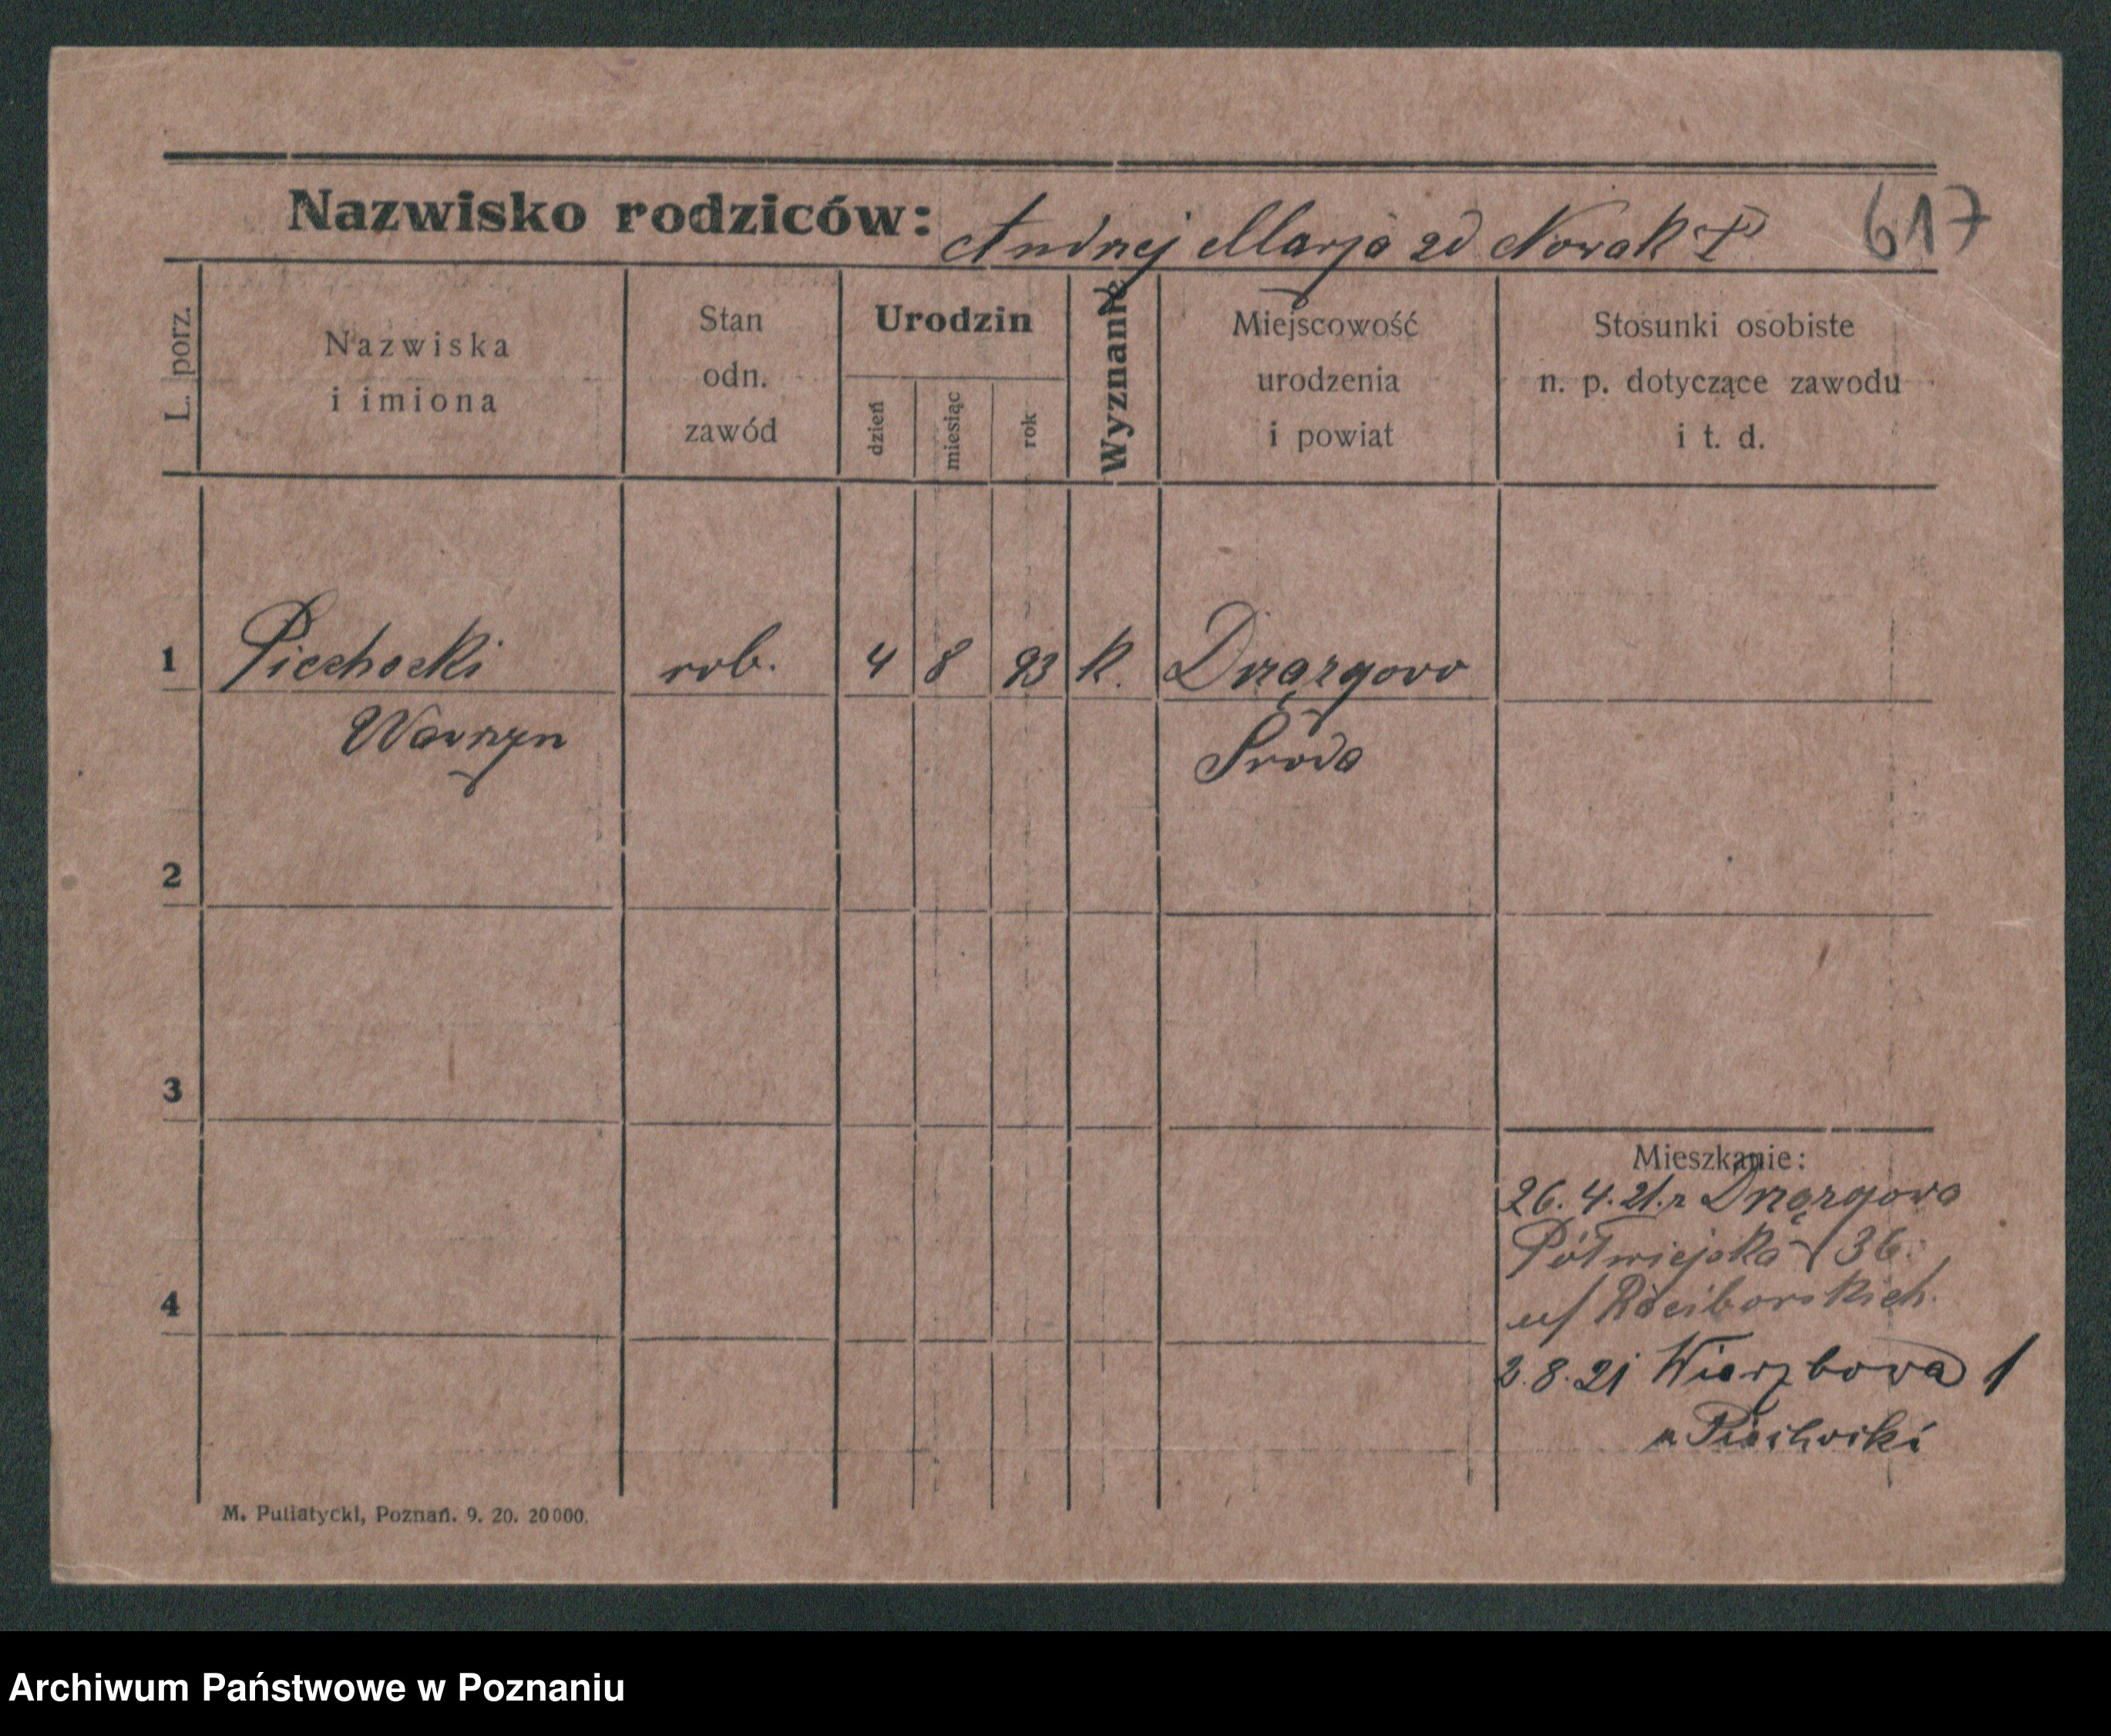 617
Nazwisko rodziców: Andrzej Marja zd Nowak
L. porz.
Nazwiska
i imiona
Stan
odn.
zawód
Urodzin
dzień
miesiąc
rok
Wyznanie
Miejscowość
urodzenia
i powiat
Stosunki osobiste
n. p. dotyczące zawodu
i t. d.
1 Piechocki rob. 4 8 93 k. Drzązgowo
Wawrzyn Środa
2
3
4
Mieszkanie:
26. 4. 21. z Drzązgowa
Półwiejska 36
u/ Raciborskich
2.8.21 Wierzbowa 1
u Piechocki
M. Putiatycki, Poznań. 9. 20. 20000.
Archiwum Państwowe w Poznaniu